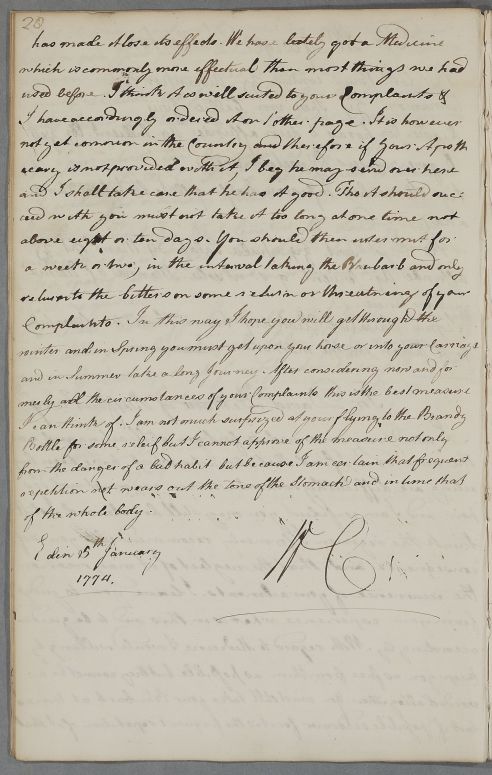 20
has made it lose its effects. We have lately got a Medicine
which is commonly more effectual than most things we had
used before. I think it is well suited to your Complaints &
I have accordingly ordered it on ye other page. It is however
not yet common in the Country and therefore if your Apoth
ecary is not provided with it, I beg he may send over here
and I shall take care that he has it good. Tho it should suc:
ceed with you you must not take it too long at one time not
above eight or ten days. You should then intermit for
a week or two, in the interval taking the Rhubarb and only
return to the bitters on some return or threatning of your
Complaints. In this way I hope you will get through the
winter and in Spring you must get upon your horse or into your Carriage
and in Summer take a long Journey. After considering now and for
merly all the circumstances of your Complaints this is the best measure
I can think of. I am not much surprized at your flying to the Brandy
Bottle for some releif but I cannot approve of the measure not only
from the danger of a bad habit but because I am certain that frequent
repetition wears out the tone of the Stomach and in time that
of the whole body.
Edin 15th January
1774.
W C